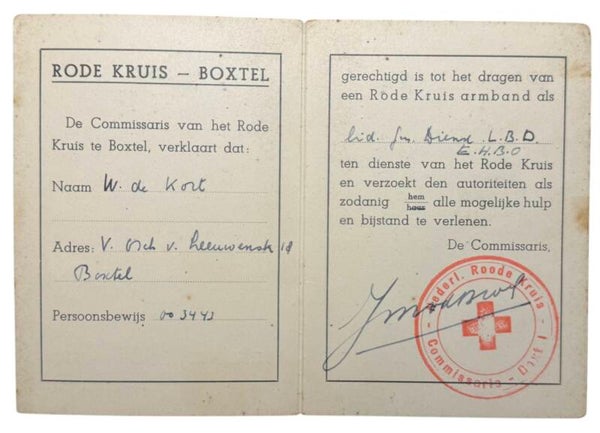 RODE KRUIS – BOXTEL
De Commissaris van het Rode
Kruis te Boxtel, verklaart dat:
Naam W. de Kort
Adres: V. Osch v. Leeuwenstr 18
Boxtel
Persoonsbewijs 003443
gerechtigd is tot het dragen van
een Rode Kruis armband als
Lid. Gn. Dienst L.B.D.
E.H.B.O
ten dienste van het Rode Kruis
en verzoekt den autoriteiten als
hem
zodanig haar alle mogelijke hulp
en bijstand te verlenen.
De Commissaris,
Nederl. Roode Kruis
Commissaris